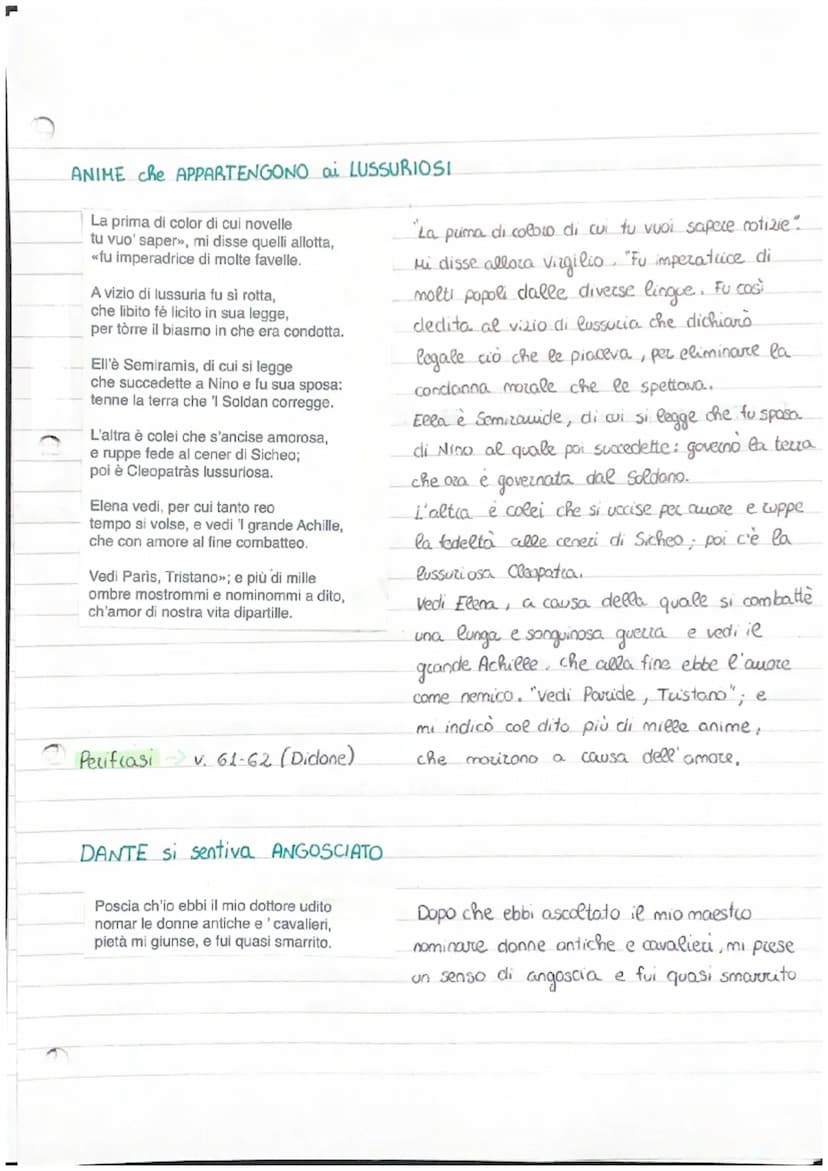 ANIME che APPARTENGONO ai LUSSURIOSI
La prima di color di cui novelle
tu vuo' saper», mi disse quelli allotta,
«fu imperadrice di molte favelle.
A vizio di lussuria fu sì rotta,
che libito fé licito in sua legge,
per tòrre il biasmo in che era condotta.
Ell'è Semiramìs, di cui si legge
che succedette a Nino e fu sua sposa:
tenne la terra che 'l Soldan corregge.
L'altra è colei che s'ancise amorosa,
e ruppe fede al cener di Sicheo;
poi è Cleopatràs lussuriosa.
Elena vedi, per cui tanto reo
tempo si volse, e vedi 'l grande Achille,
che con amore al fine combatteo.
Vedi Parìs, Tristano»; e più di mille
ombre mostrommi e nominommi a dito,
ch'amor di nostra vita dipartille.
"La prima di coloro di cui tu vuoi sapere notizie".
Mi disse allora Virgilio. "Fu imperatrice di
molti popoli dalle diverse lingue. Fu così
dedita al vizio di lussuria che dichiarò
legale ciò che le piaceva, per eliminare la
condanna morale che le spettava.
Ella è Semiramide, di cui si legge che fu sposa
di Nino al quale poi succedette: governò la terra
che ora è governata dal Soldano.
L'altra è colei che si uccise per amore e ruppe
la fedeltà alle ceneri di Sicheo; poi c'è la
lussuriosa Cleopatra.
Vedi Elena, a causa della quale si combattè
una lunga e sanguinosa guerra e vedi il
grande Achille, che alla fine ebbe l'amore
come nemico. "Vedi Paride, Tristano"; e
mi indicò col dito più di mille anime,
che morirono a causa dell'amore.
Perifrasi → v. 61-62 (Didone)
DANTE si sentiva ANGOSCIATO
Poscia ch'io ebbi il mio dottore udito
nomar le donne antiche e ' cavalieri,
pietà mi giunse, e fui quasi smarrito.
Dopo che ebbi ascoltato il mio maestro
nominare donne antiche e cavalieri, mi prese
un senso di angoscia e fui quasi smarrito